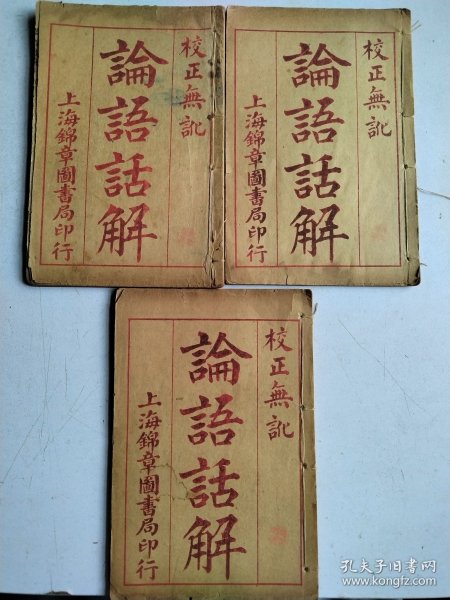 校正無訛
論語話解
上海錦章圖書局印行
校正無訛
論語話解
上海錦章圖書局印行
校正無訛
論語話解
上海錦章圖書局印行
孔夫子旧书网
www.kongfz.com